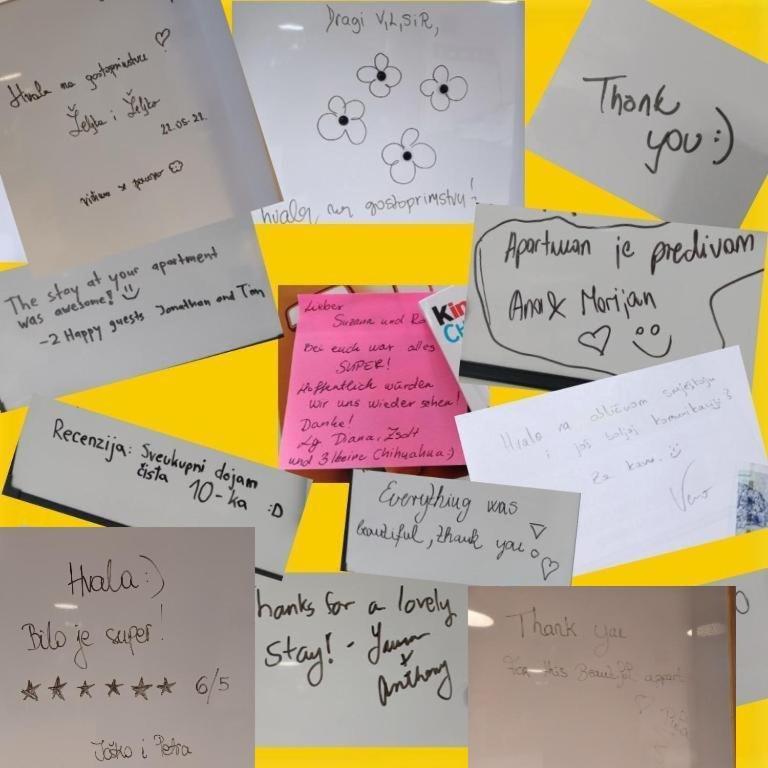 Hvala na gostoprimstvu!
Željka i Željko
22.05.22.
vidimo se ponovo
Dragi V,L,SiR,
hvala na gostoprimstvu!
Thank
you :)
The stay at your apartment
was awesome!
-2 Happy guests Jonathan and Tim
Apartman je predivan
Ana & Marijan
Lieber
Suzana und Ro
Bei euch war alles
SUPER!
Hoffentlich würden
wir uns wieder sehen!
Danke!
Lg Diana, Zsolt
und 3 kleine Chihuahua :)
Kin
Ch
Hvala na odličnom smještaju
i još boljoj komunikaciji :)
Za kavu. :)
Recenzija: Sveukupni dojam
čista 10-ka :D
Everything was
beautiful, thank you!
Hvala :)
Bilo je super!
6/5
Joško i Petra
hanks for a lovely
stay! -
Anthony
Thank you
For this Beautiful appart